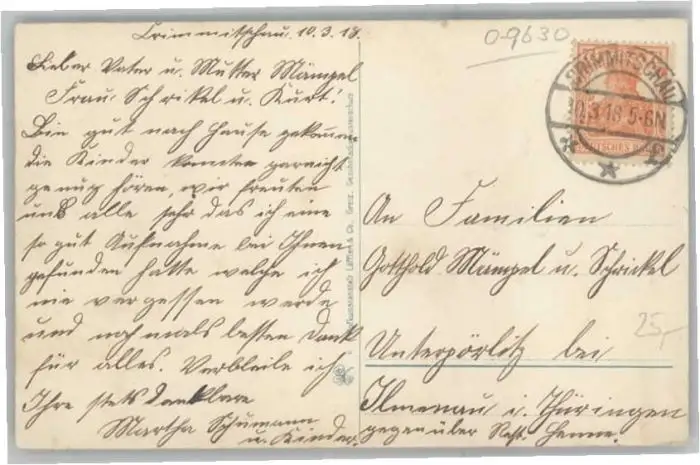 Crimmitschau. 10.3.18.
Lieber Vater u. Mutter Mämpel
Frau Schrikel u. Kurt!
Bin gut nach Hause gekommen
die Kinder konnten garnicht
genug hören, wir freuten
uns alle sehr das ich eine
so gut Aufnahme bei Ihnen
gefunden hatte welge ich
nie vergessen werde
und nochmals besten Dank
für alles. Verbleile ich
Ihre stets Dankbare
Martha Schumann
u. Kinder.
0-9630
CRIMMITSCHAU
10.3.18 5-6N
DEUTSCHES REICH
An Familien
Gotthold Mämpel u. Schrickel
25,-
Unterpörlitz bei
Ilmenau i. Thüringen
gegenüber Rest. Henne.